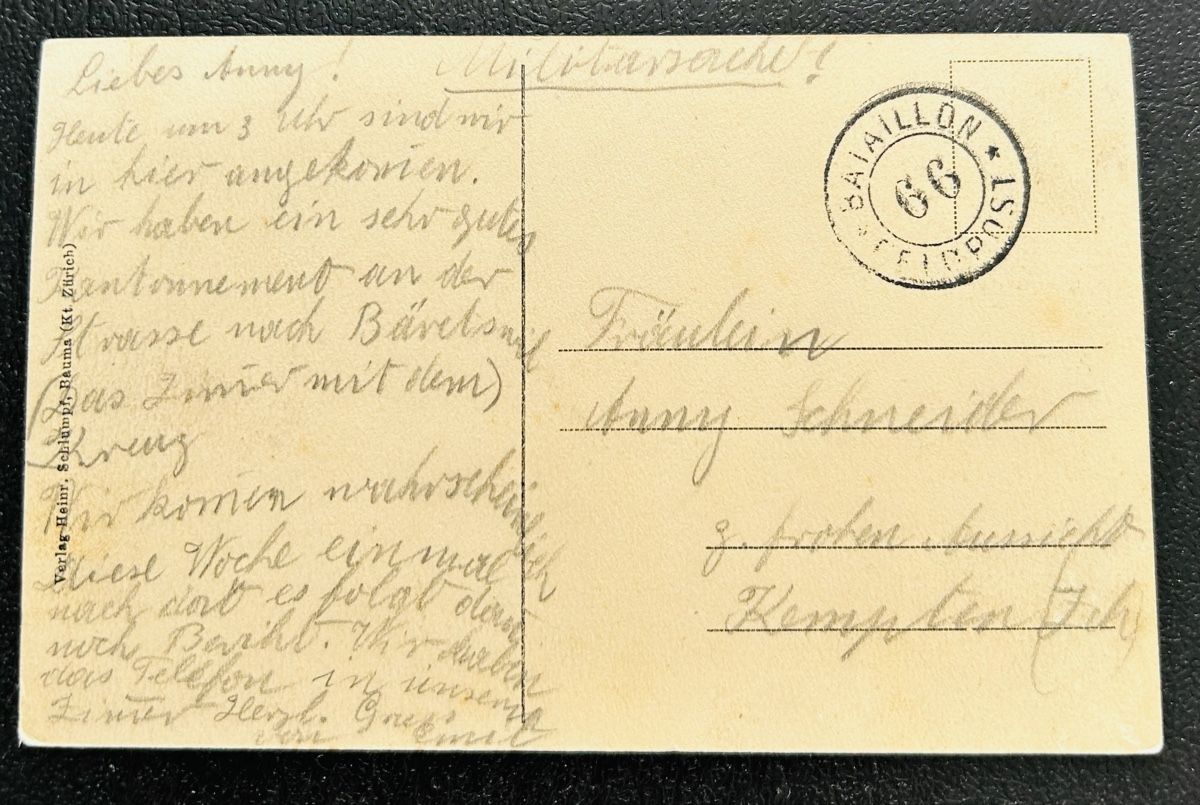 Liebes Anny!
Heute um 3 Uhr sind wir
in hier angekom̅en.
Wir haben ein sehr gutes
Kantonnement an der
Strasse nach Bäretswil
(Das Zim̅er mit dem)
Kreuz
Wir kom̅en wahrscheinlich
diese Woche einmal
nach dort es folgt dann
noch Bericht. Wir haben
das Telefon in unserem
Zim̅er Herzl. Gruss
von Emil
Verlag Heinr. Schlumpf, Bauma (Kt. Zürich)
Militärsache!
BATAILLON 66
* FELDPOST *
Fräulein
Anny Schneider
z. frohen Aussicht
Kempten (Zch)